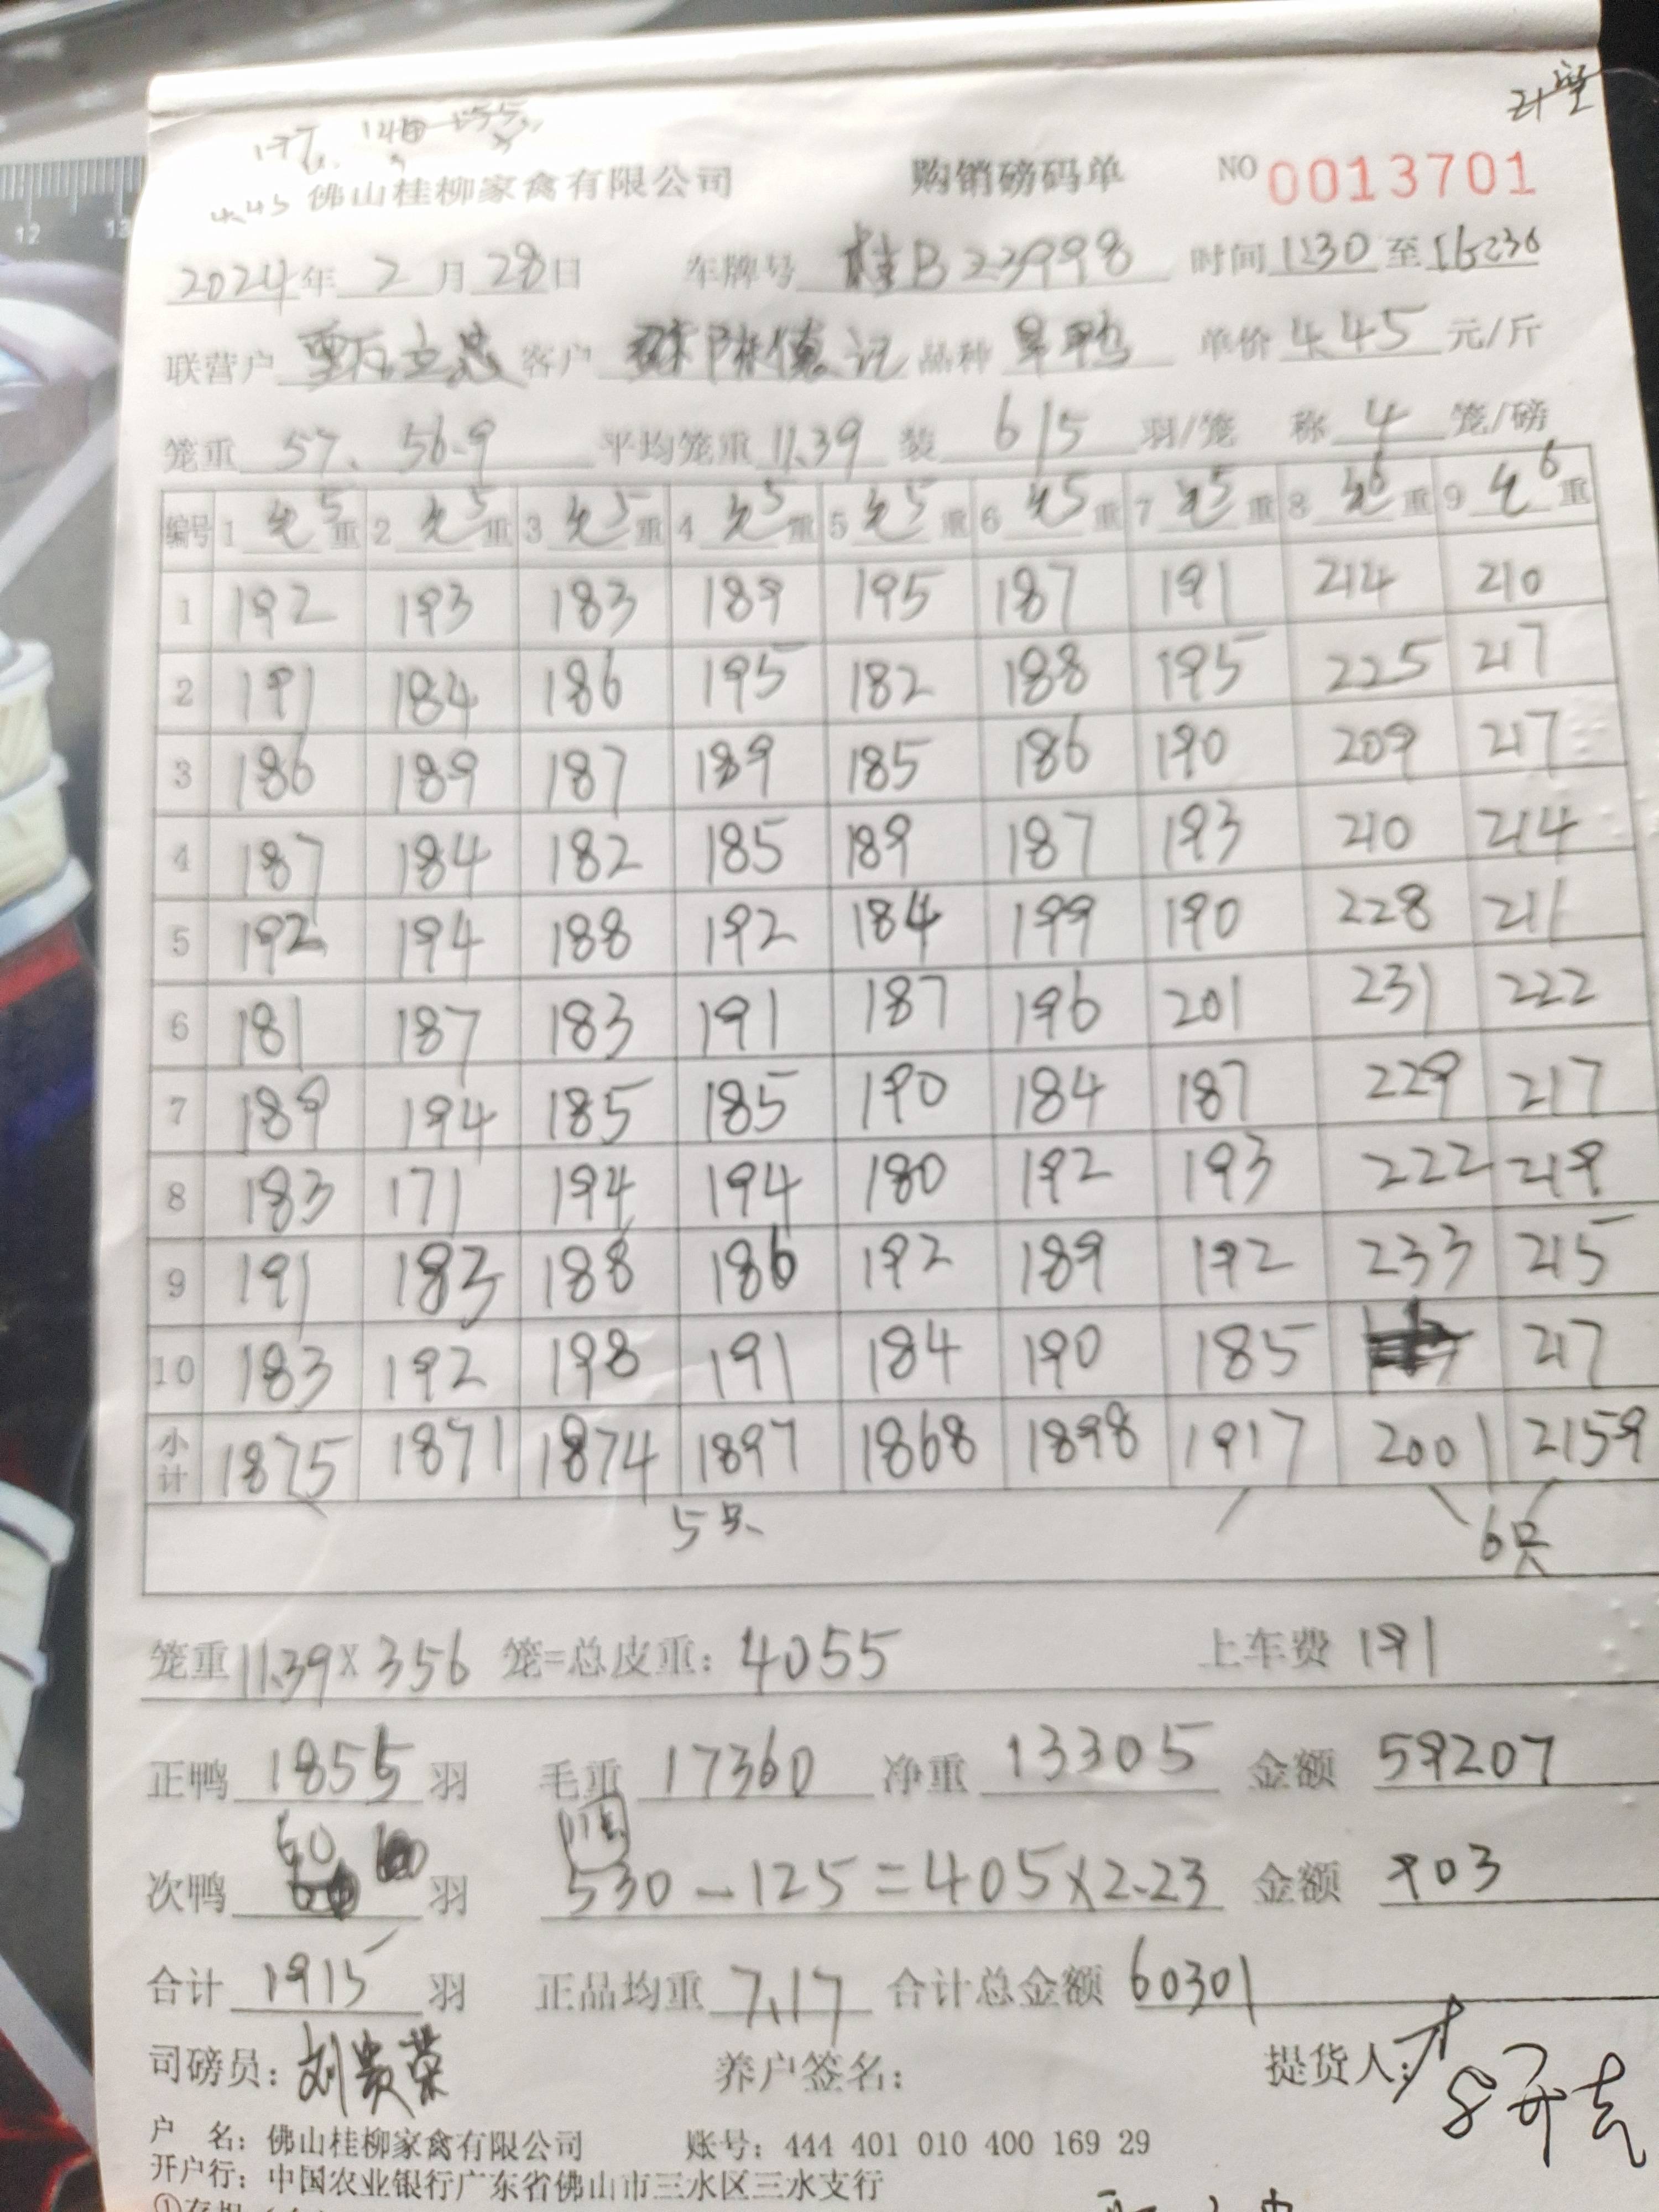 佛山桂柳家禽有限公司 购销磅码单 NO 0013701
4.45
2024年 2 月 28 日 车牌号 桂B23998 时间 1230 至
联营户 客户 陈德记 品种 单价 4.45 元/斤
笼重 57. 56.9 平均笼重 11.39 装 6 15 羽/笼 称 4 笼/磅
编号 1 5 重 2 5 重 3 5 重 4 5 重 5 5 重 6 5 重 7 5 重 8 6 重 9 6 重
1 192 193 183 189 195 187 191 214 210
2 191 184 186 195 182 188 195 225 217
3 186 189 187 189 185 186 190 209 217
4 187 184 182 185 189 187 193 210 214
5 192 194 188 192 184 199 190 228 211
6 181 187 183 191 187 196 201 231 222
7 189 194 185 185 190 184 187 229 217
8 183 171 194 194 180 192 193 222 219
9 191 183 188 186 192 189 192 233 215
10 183 192 198 191 184 190 185 217
小计 1875 1871 1874 1897 1868 1898 1917 2001 2159
5只 6只
笼重 11.39 X 356 笼=总皮重: 4055 上车费 191
正鸭 1855 羽 毛重 17360 净重 13305 金额 59207
60
次鸭 羽 530-125=405×2.23 金额 903
合计 1915 羽 正品均重 7.17 合计总金额 60301
司磅员: 刘贵荣 养户签名: 提货人:
户 名: 佛山桂柳家禽有限公司 账号: 444 401 010 400 169 29
开户行: 中国农业银行广东省佛山市三水区三水支行